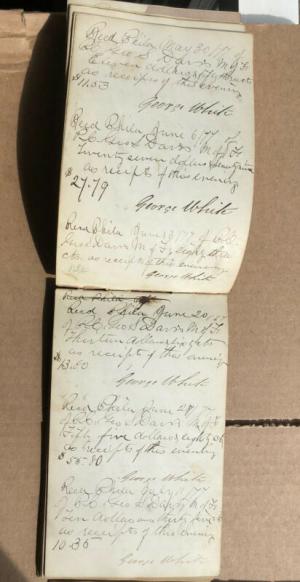 Recd Phila May 30/77 of
Geo S Davis M of F
Eleven dollars fifty three cts
as receipts of this evening
$11.53
George White
Recd Phila June 6/77 of
Geo S Davis M of F
Twenty seven dollars seventy nine
as receipts of this evening
$27.79
George White
Recd Phila June 13/77 of
Geo S Davis M of F eighty three
cts. as receipts of this evening
George White
Recd Phila
Recd Phila June 20/77
of Geo S Davis M of F
Thirteen dollars fifty cts
as receipts of this evening
$13.50
George White
Recd Phila June 27/77
of Geo S Davis M of F
Fifty five dollars eighty cts
as receipts of this evening
$55.80
George White
Recd Phila July /77
of Geo S Davis M of F
Ten dollars and thirty five cts
as receipts of this evening
10.35
George White